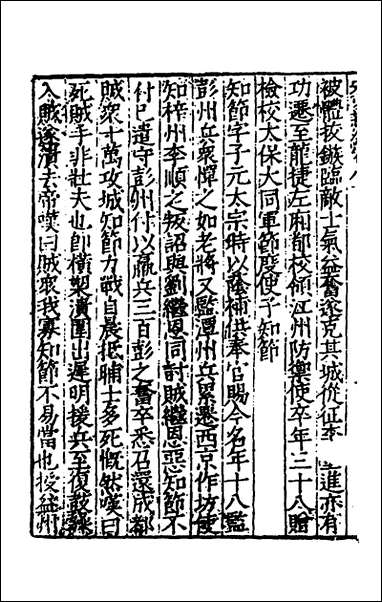 被體拔鏃臨敵士氣益奮遂克其城從征李 進亦有
功遷至龍捷左廂都校領江州防禦使卒年三十八贈
檢校太保大同軍節度使子知節
知節字子元太宗時以蔭補供奉官賜今名年十八監
彭州兵衆憚之如老將又監潭州兵累遷西京作坊使
知梓州李順之叛詔與劉繼恩同討賊繼恩惡知節不
付已遣守彭州付以羸兵三百彭之舊卒悉召還成都
賊衆十萬攻城知節力戰自晨抵晡士多死慨然嘆曰
死賊手非壯夫也卽橫槊潰圍出遲明援兵至復鼓譟
入賊遂潰去帝嘆曰賊衆我寡知節不易當也授益州